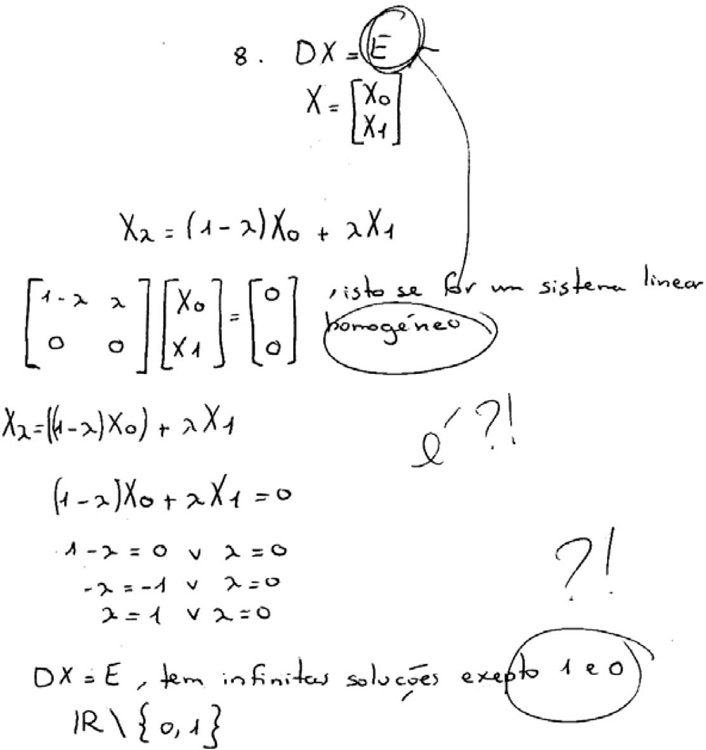 8. DX = E
X = [X0
X1]
Xλ = (1-λ)X0 + λX1
[1-λ λ] [X0] = [0] , isto se for um sistema linear
[0 0] [X1] [0] homogéneo
Xλ = ((1-λ)X0) + λX1
é ?!
(1-λ)X0 + λX1 = 0
1-λ = 0 ∨ λ = 0
-λ = -1 ∨ λ = 0
?!
λ = 1 ∨ λ = 0
DX = E, tem infinitas soluções exepto 1 e 0
IR \ {0,1}